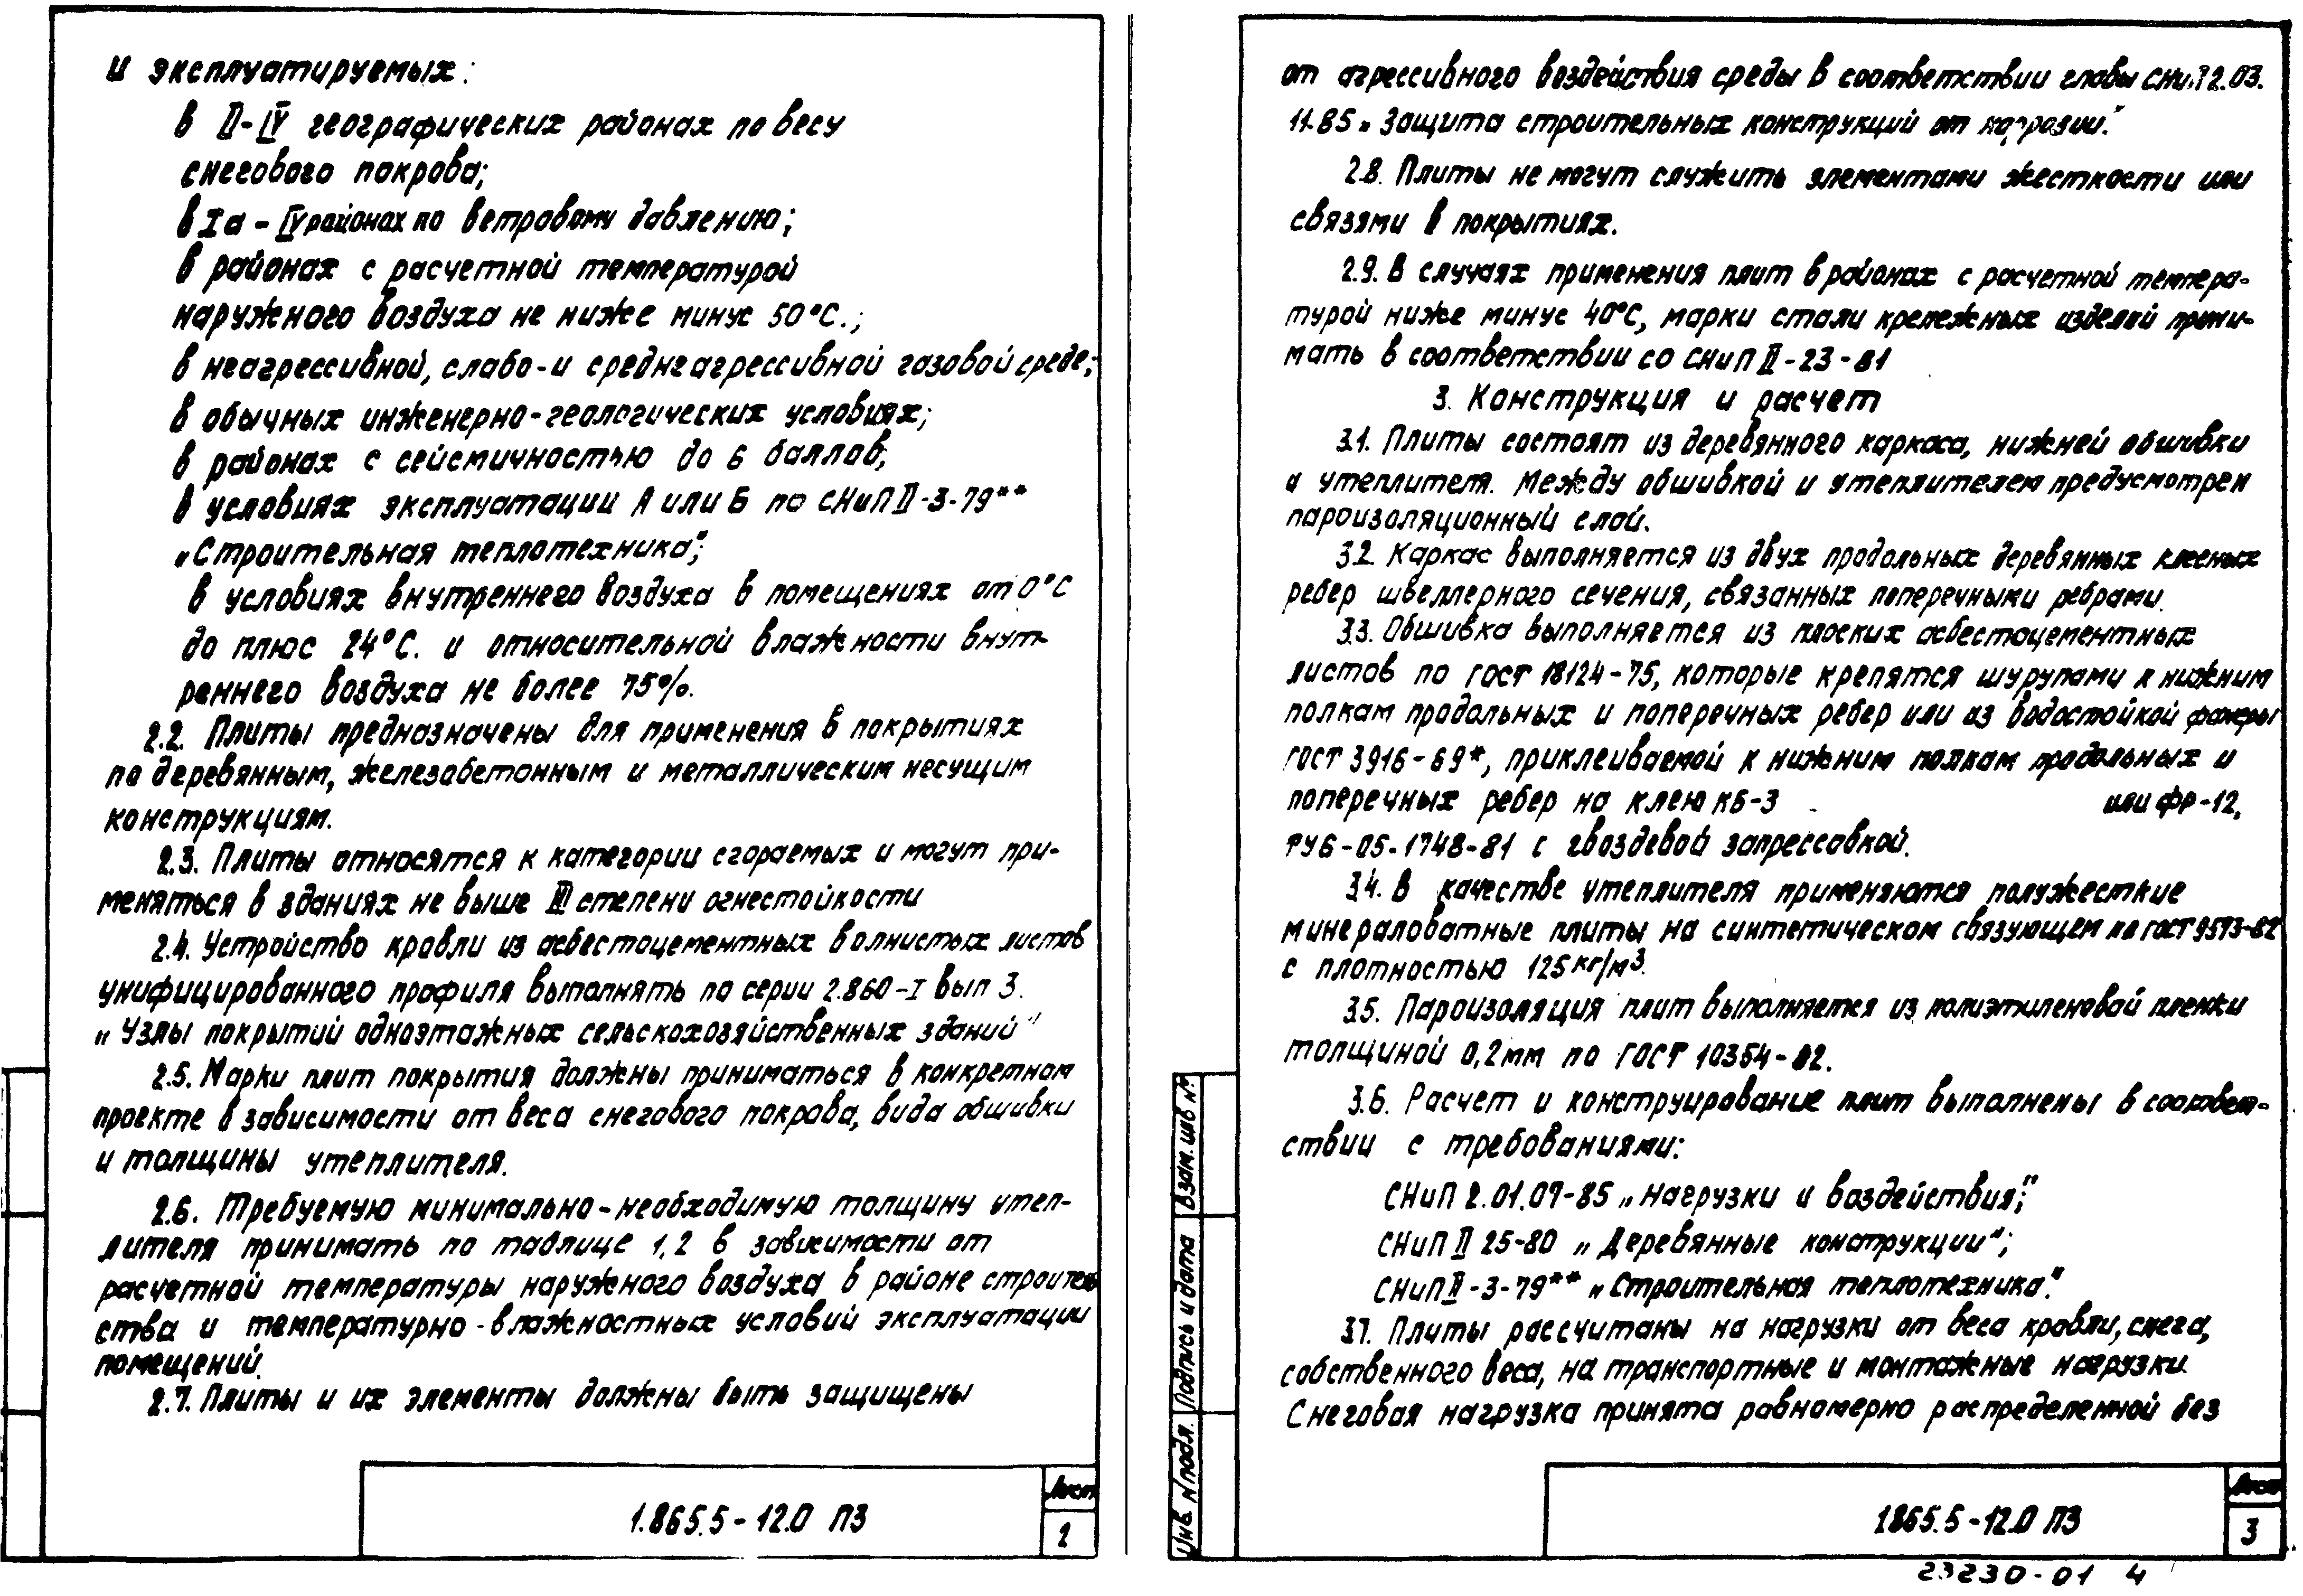 и эксплуатируемых:
в II-IV географических районах по весу
снегового покрова;
в Iа - IV районах по ветровому давлению;
в районах с расчетной температурой
наружного воздуха не ниже минус 50°С.;
в неагрессивной, слабо- и среднеагрессивной газовой среде;
в обычных инженерно-геологических условиях;
в районах с сейсмичностью до 6 баллов;
в условиях эксплуатации А или Б по СНиП II-3-79**
„Строительная теплотехника";
в условиях внутреннего воздуха в помещениях от 0°С
до плюс 24°С. и относительной влажности внут-
реннего воздуха не более 75%.
2.2. Плиты предназначены для применения в покрытиях
по деревянным, железобетонным и металлическим несущим
конструкциям.
2.3. Плиты относятся к категории сгораемых и могут при-
меняться в зданиях не выше III степени огнестойкости
2.4. Устройство кровли из асбестоцементных волнистых листов
унифицированного профиля выполнять по серии 2.860-I вып 3.
„Узлы покрытий одноэтажных сельскохозяйственных зданий"
2.5. Марки плит покрытия должны приниматься в конкретном
проекте в зависимости от веса снегового покрова, вида обшивки
и толщины утеплителя.
2.6. Требуемую минимально-необходимую толщину утеп-
лителя принимать по таблице 1,2 в зависимости от
расчетной температуры наружного воздуха в районе строитель
ства и температурно-влажностных условий эксплуатации
помещений.
2.7. Плиты и их элементы должны быть защищены
1.865.5-12.0 ПЗ
Лист
2
от агрессивного воздействия среды в соответствии главы СНиП 2.03.
11.85 „Защита строительных конструкций от коррозии."
2.8. Плиты не могут служить элементами жесткости или
связями в покрытиях.
2.9. В случаях применения плит в районах с расчетной темпера-
турой ниже минус 40°С, марки стали крепежных изделий прини-
мать в соответствии со СНиП II-23-81
3. Конструкция и расчет
3.1. Плиты состоят из деревянного каркаса, нижней обшивки
и утеплителя. Между обшивкой и утеплителем предусмотрен
пароизоляционный слой.
3.2. Каркас выполняется из двух продольных деревянных клееных
ребер швеллерного сечения, связанных поперечными ребрами.
3.3. Обшивка выполняется из плоских асбестоцементных
листов по ГОСТ 18124-75, которые крепятся шурупами к нижним
полкам продольных и поперечных ребер или из водостойкой фанеры
ГОСТ 3916-69*, приклеиваемой к нижним полкам продольных и
поперечных ребер на клею КБ-3 или ФР-12,
ТУ6-05-1748-81 с гвоздевой запрессовкой.
3.4. В качестве утеплителя применяются полужесткие
минераловатные плиты на синтетическом связующем по ГОСТ 9573-82
с плотностью 125 кг/м³.
3.5. Пароизоляция плит выполняется из полиэтиленовой пленки
толщиной 0,2мм по ГОСТ 10354-82.
3.6. Расчет и конструирование плит выполнены в соответ-
ствии с требованиями:
СНиП 2.01.07-85 „Нагрузки и воздействия";
СНиП II 25-80 „Деревянные конструкции";
СНиП II-3-79** „Строительная теплотехника".
3.7. Плиты рассчитаны на нагрузки от веса кровли, снега,
собственного веса, на транспортные и монтажные нагрузки.
Снеговая нагрузка принята равномерно распределенной без
Взам. инв №
Подпись и дата
Инв. № подл.
1.865.5-12.0 ПЗ
Лист
3
23230-01 4